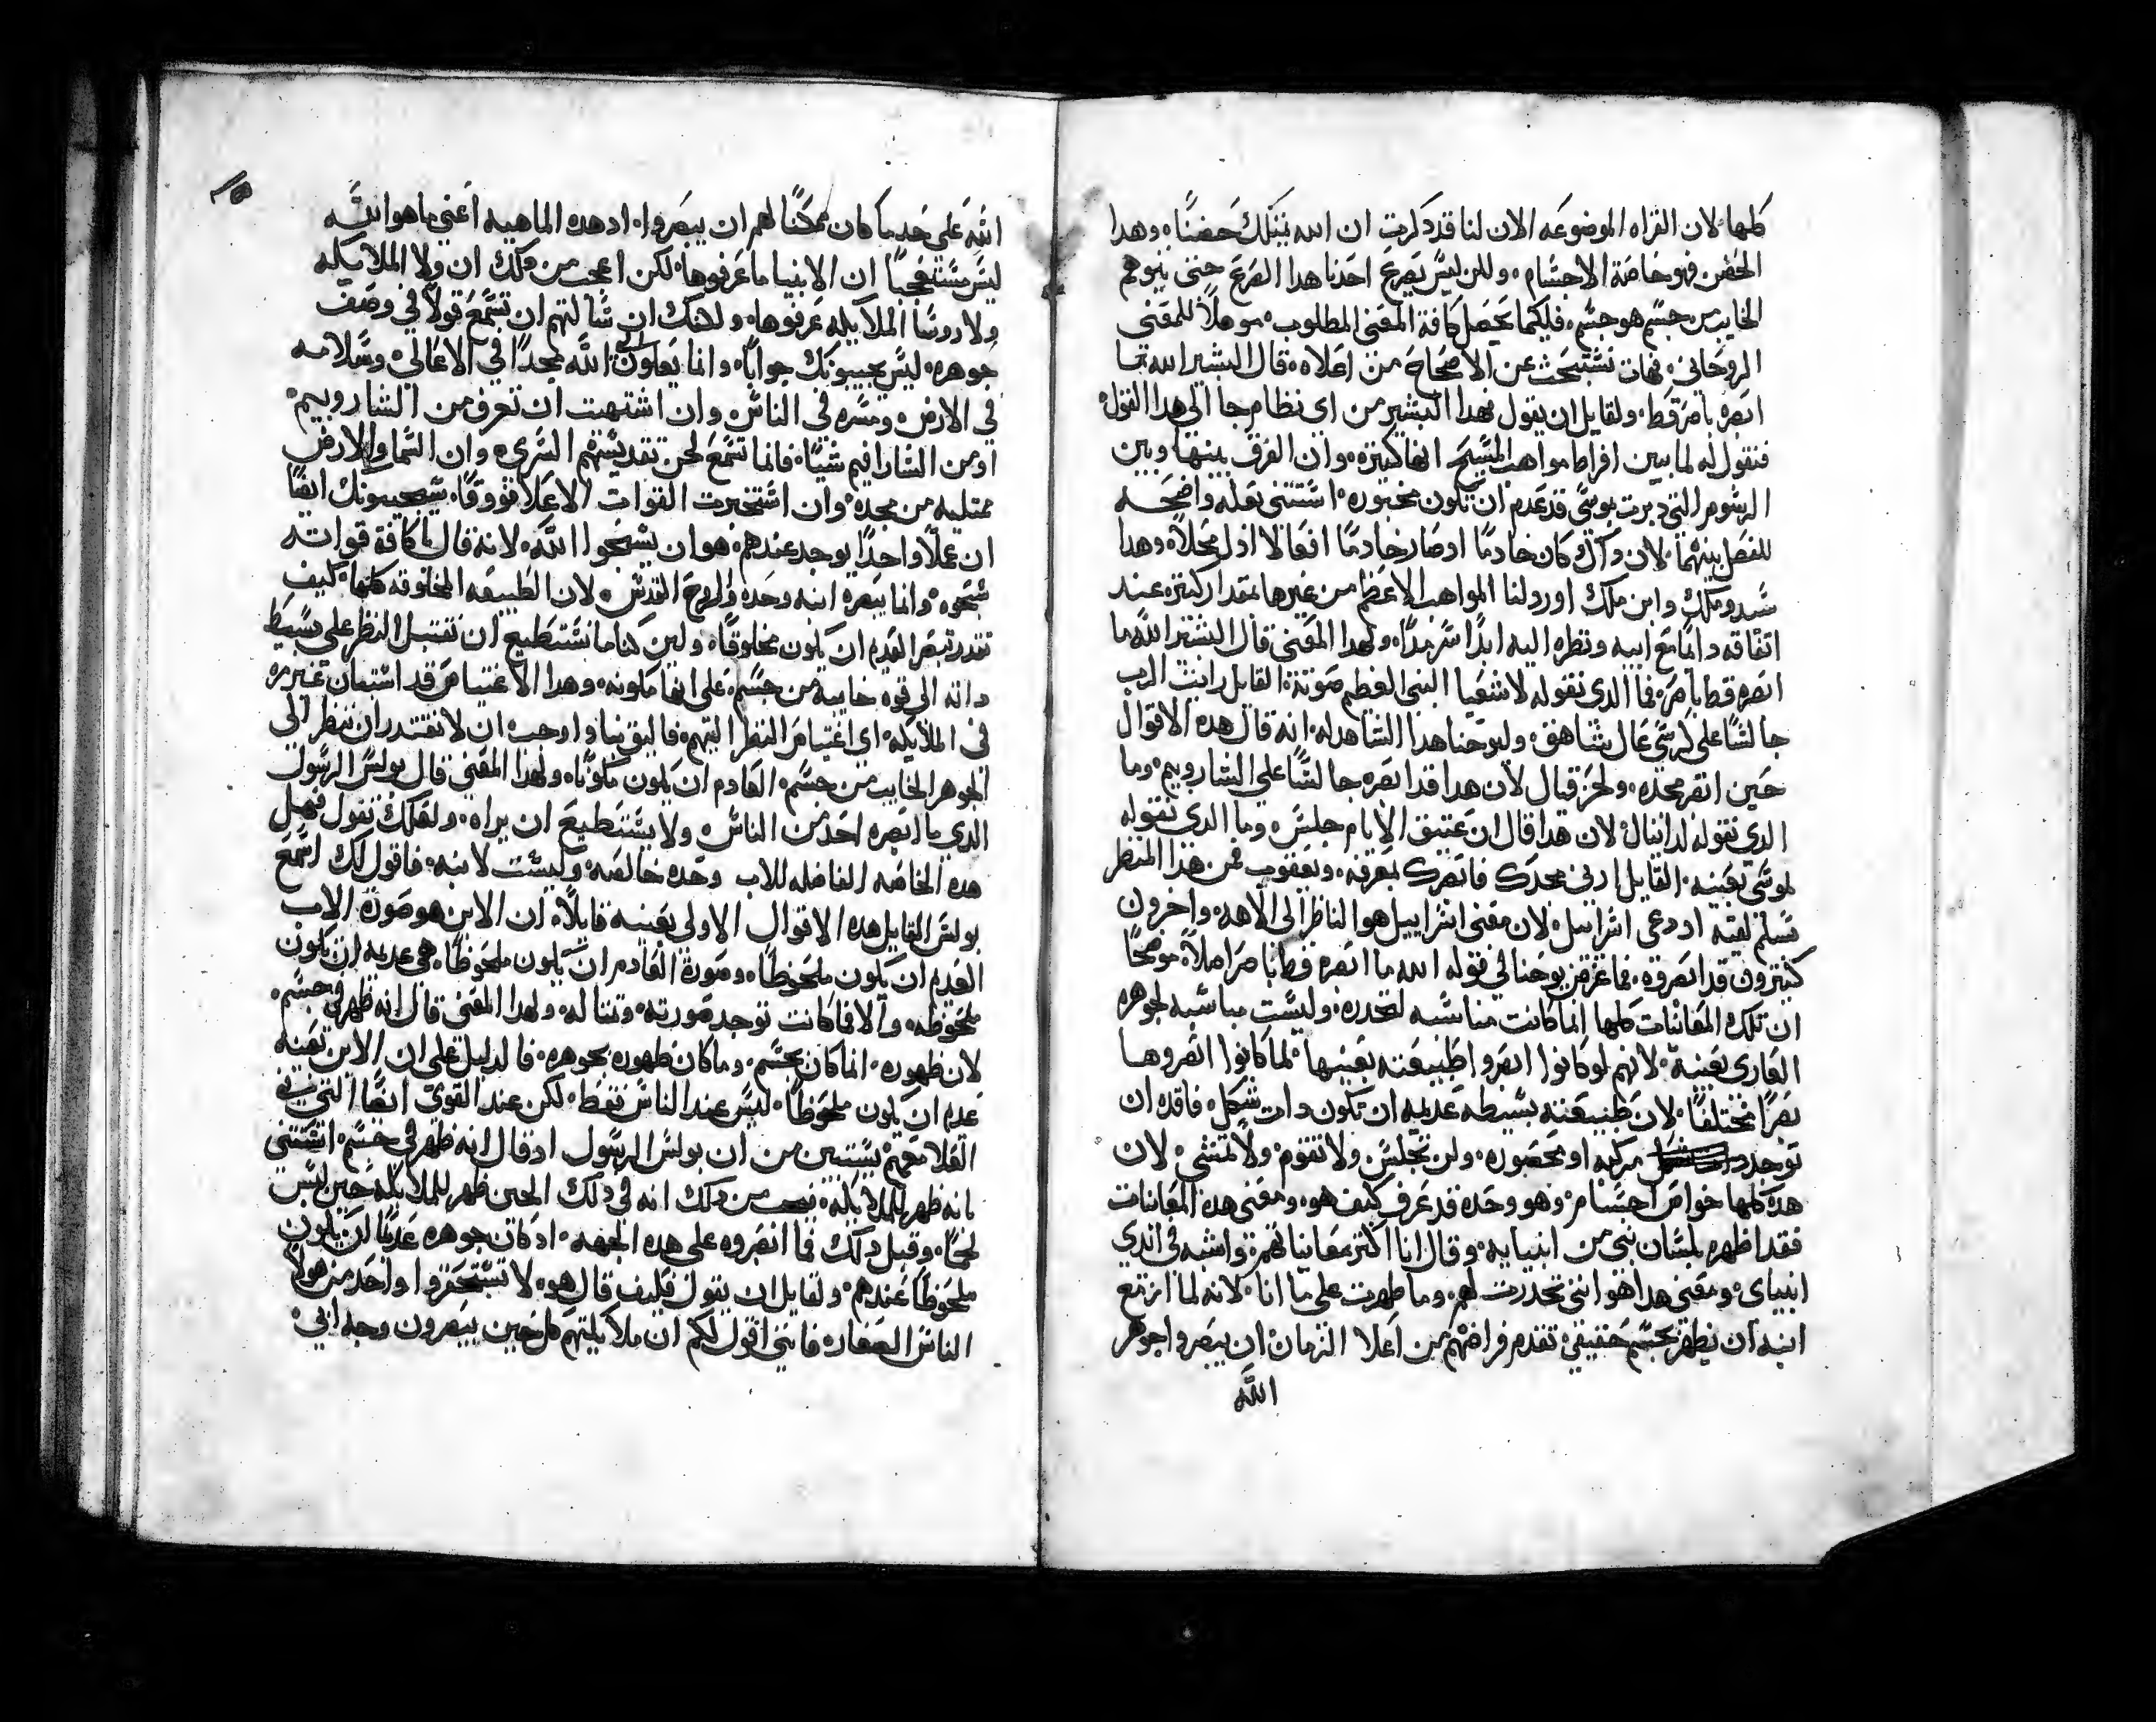 كلها لان القراه الموضوعه الان لنا قد ذكرت ان الله يمتلك حضنًا وهدا
الحضن فهو خاصة الاجسام ولكن ليس يصرع احدنا هدا الصرع حتى يتوهم
الخايب من جسم هو جسم فلكيما يحصل كافة المعنى المطلوب موهلاً للمعنى
الروحاني فهات نستبحث عن الاصحاح من اعلاه قال البشير الله ما
ابصره بامر قط ولقايل ان يقول فهدا البشير من اى نظام جا الى هدا القول
فنقول له لما بين افراط مواهب المسيح انها كثيره وان الفرق بينها وبين
الرسوم التي دبرت بموسى قد عدم ان تكون مخبوره استثنى بعله واضحه
للفصل بينهما لان داك كان خادمًا اوصار خادمًا افعالا ادل محلاً وهدا
سيد وملك وابن ملك اورد لنا المواهب الاعظم من غيرها بمقدار كثره عند
اتفاقه دايمًا مع ابيه ونظره اليه ابدًا سرمدًا ولهدا المعنى قال البشير الله ما
ابصره قط بامره فما الدي نقوله لاشعيا النبي العظيم صوته القايل رايت الرب
جالسًا على كرسي عال شاهق وليوحنا هدا الشاهد له انه قال هده الاقوال
حين ابصر مجده ولحزقيال لان هدا قد ابصره جالسًا على الشاروبيم وما
الدي نقوله لدانيال لان هدا قال ان عتيق الايام جلس وما الدي نقوله
لموسى بعينه القايل ارنى مجدك فابصرك بمعرفه ويعقوب فمن هدا المنظر
تسلم لقبه اد دعى اسراييل لان معنى اسراييل هو الناظر الى الاهه واخرون
كثيرون قد ابصروه فما غرض يوحنا في قوله الله ما ابصره قط بامر املاً موضحًا
ان تلك المعاينات كلها انما كانت مناسبه لتحدره وليست مناسبه لجوهره
العارى بعينه لانهم لو كانوا ابصروا طبيعته بعينها لما كانوا ابصروها
بصرًا مختلفًا لان طبيعته بسيطه عديمه ان تكون دات شكل فاقده ان
توجد مركبه او محصوره ولن تجلس ولا تقوم ولا تمشي لان
هده كلها خواص اجسام وهو وحده قد عرف كيف هو ومعنى هده المعاينات
فقد اظهره بلسان نبي من انبيايه وقال انا اكثر معاينا تهم واشبه في ايدي
انبياى ومعنى هدا هو انني تحدرت لهم وما ظهرت على ما انا لانه لما ازمع
ابنه ان يظهر بجسم حقيقي تقدم فراضهم من اعلا الزمان ان يبصروا جوهر
الله
الله على حد ما كان ممكنًا لهم ان يبصروا اد هده الماهيه اعني ما هو الله
ليس مستعجبًا ان الانبيا ما عرفوها لكن اعجب من دلك ان ولا الملايكه
ولا روسا الملايكه عرفوها ولانك ان سالتهم ان تسمع قولاً في وصف
جوهره ليس يجيبونك جوابًا وانما يقولون الله مجدًا في الاعالى وسلامه
في الارض ومسره في الناس وان اشتهيت ان تعرف من الشاروبيم
او من الشارافيم شيًا فانما تسمع لحن تقديسهم السري وان السما والارض
ممتليه من مجده وان استخبرت القوات الاعلا فوقًا سيجيبونك ايضًا
ان عملاً واحدًا يوجد عندهم هو ان يسبحوا الله لانه قال يا كافة قواته
سبحوه وانما يبصره ابنه وحده والروح القدس لان الطبيعه المخلوقه كلها كيف
تقدر تبصر القديم ان يكون مخلوقًا ولين كنا ما نستطيع ان نقتبل النظر على بسيط
داته الى قوه خايبه من جسم على انها مكونه وهدا الاغتياص قد استبان غير مره
فى الملايكه اى اغتياص النظر اليهم فاليق بنا واوجب ان لا نقتدر ان ننظر الى
الجوهر الخايب من جسم العادم ان يكون مكونًا ولهدا المعنى قال بولس الرسول
الدي ما ابصره احد من الناس ولا يستطيع ان يراه ولعلك تقول فهل
هده الخاصه الفاضله للاب وحده خالصه وليست لابنه فاقول لك اسمع
بولس القايل هده الاقوال الاولى بعينه قايلاً ان الابن هو صورة الاب
العديم ان يكون ملحوظًا وصورة العادم ان يكون ملحوظًا هي عديمه ان تكون
ملحوظه والا فما كانت توجد صورته ومثاله ولهدا المعنى قال انه ظهر في جسم
لان ظهوره انما كان بجسم وما كان ظهوره بجوهره فالدليل على ان الابن بعينه
عدم ان يكون ملحوظًا ليس عند الناس فقط لكن عند القوى ايضًا التي في
العلا معهم يستبين من ان بولس الرسول اد قال انه ظهر في جسم استثنى
بانه ظهر للملايكه من دلك انه في دلك الحين ظهر للملايكه حين لبس
لحمًا وقبل دلك فما ابصروه على هده الجهه اد كان جوهره عديمًا ان يكون
ملحوظًا عندهم ولقايل ان يقول فكيف قال هو لا تستحقروا واحد من هولا
الناس الصغار فانني اقول لكم ان ملايكتهم كل حين يبصرون وجه ابي